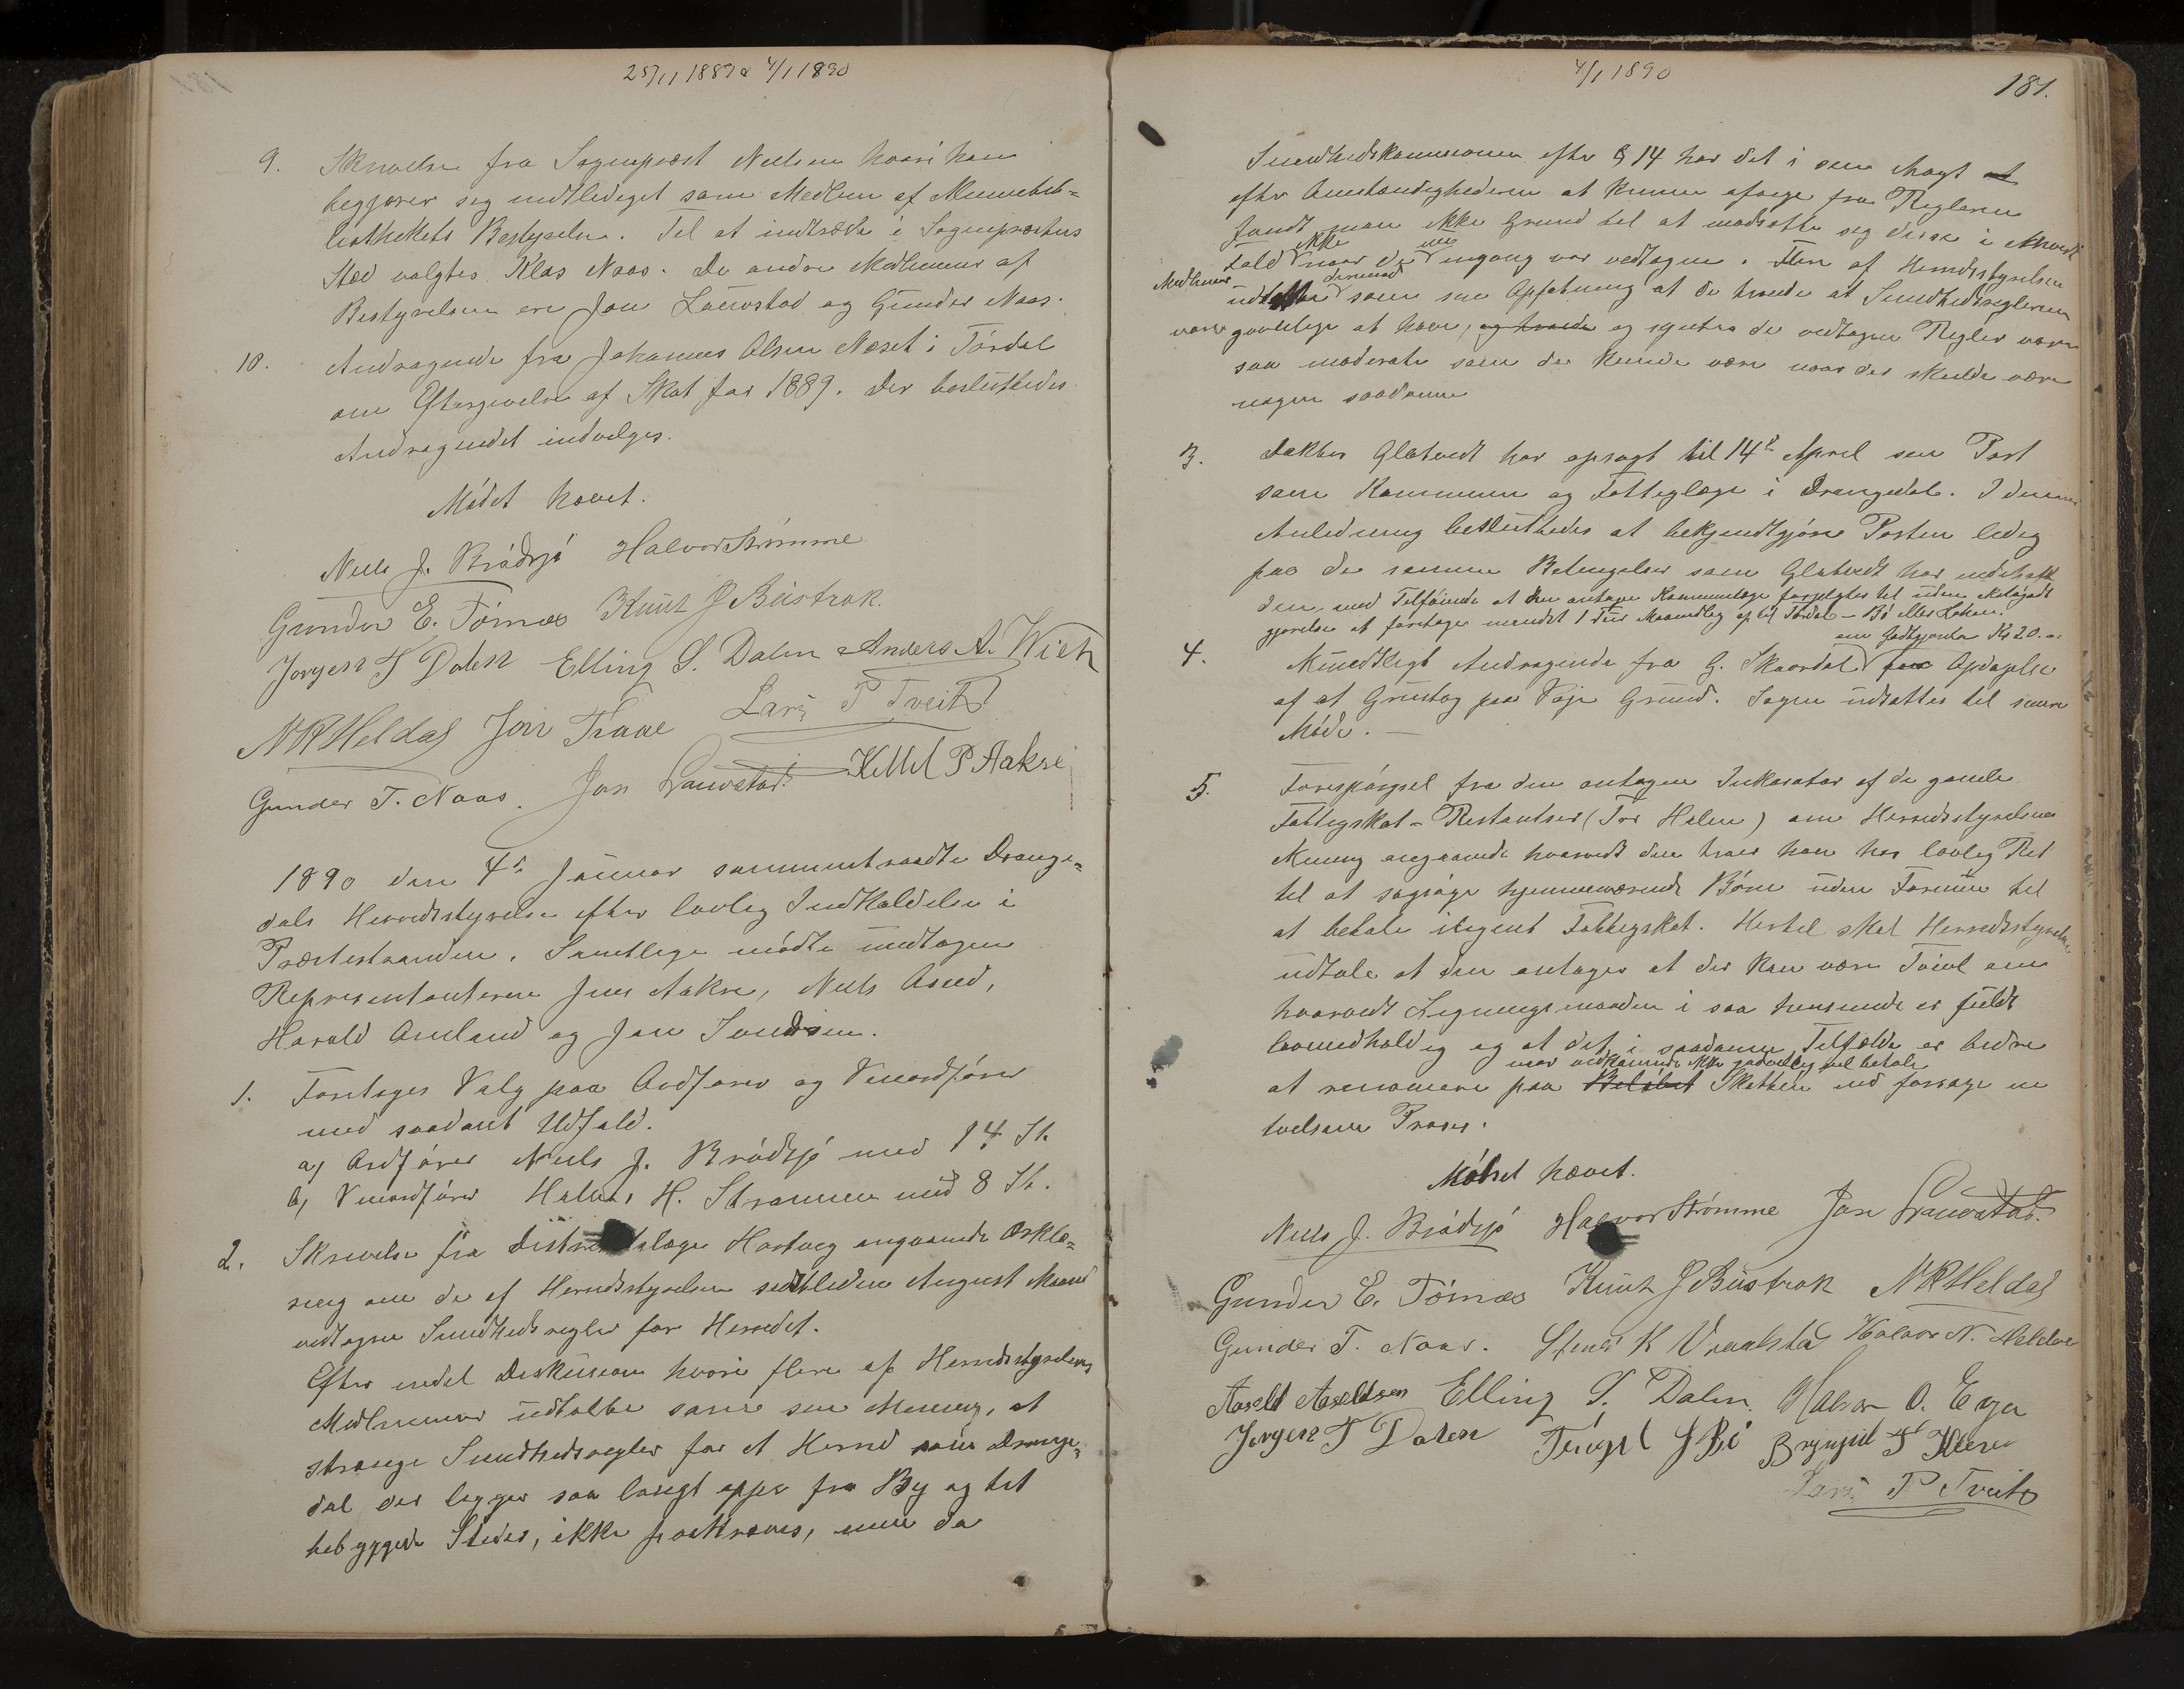 25/11 1889 & 4/1 1890
9. Skrivelse fra Sogneprest Nielsen hvori han
begjærer sig entlediget som Medlem af Almuebib=
liothekets Bestyrelse. Til at indtræde i Sogneprestens
Sted valgtes Klas Naas. De andre Medlemmer af
Bestyrelsen ere Jon Lauvstad og Gunder Naas.
10. Andragende fra Johannes Olsen Næset i Tørdal
om Eftergivelse af Skat for 1889. Der besluttedes
Andragendet indvilges.
Mødet hævet.
Niels J. Brødsjø Halvor Strømme
Gunder E. Tørnes Knut J Bustrak.
Jørgen T Dalen Elling S. Dalen Anders A. Wiek
N R Heldal Jon Traae Lars P Tveit
Gunder T. Naas. Jon Lauvstad. Kittel P Aakre
1890 den 4de Januar sammentraadte Drange=
dals Herredsstyrelse efter lovlig Indkaldelse i
Præstestranden. Samtlige mødte undtagen
Representanterne Jens Aakre, Niels
Harald Omland og Jon
1. Foretoges Valg paa Ordfører og Viceordfører
med saadant Udfald.
a, Ordfører Niels J. Brødsjø med 14 St.
b, Viceordfører Halvor H. Strømme med 8 St.
2. Skrivelse fra Distriktslæge Hartvig angaaende Erklæ=
ring om de af Herredsstyrelsen sidstleden August Maaned
vedtagne Sundhedsregler for Herredet.
Efter endel Diskussion hvori flere af Herredsstyrelsens
Medlemmer udtalte som sin Mening, at
strænge Sundhedsregler for et Herred som Drange=
dal der ligger saa langt oppe fra By og tæt
bebyggede Steder, ikke paakræves, men da
4/1 1890
181.
Sundhedskommissionen efter § 14 har det i sin Magt at
efter Omstændighederne at kunne afvige fra Reglerne
fandt man ikke Grund til at modsætte sig disse i
Fald ikke naar de engang var vedtagne. Flere af Herredsstyrelsens
Medlemmer udtalte derimod som sin Opfatning at de troede at Sundhedsreglerne
være gavnlige at have, og troede og syntes de vedtagne Regler være
saa moderate som de kunde være naar der skulde være
nogen saadanne
3. Doktor Glatvedt har opsagt til 14de April sin Post
som Kommune og Fattiglæge i Drangedal. I denne
Anledning besluttedes at bekjendtgjøre Posten ledig
paa de samme Betingelser som Glatvedt har indehaft
den, med Tilføiende at den antagne Kommunelæge forpligtes til uden Godt
gjørelse at foretage mindst 1 Reise Maanedlig op til Tørdal – Bø eller
4. Mundtligt Andragende fra G. Skaardal om Godtgjørelse Kr 20.00 for Opdagelse
af et Grustag paa Grund. Sagen udsattes til senere
Møde. –
5. Forespørgsel fra den antagne Inkasator af de gamle
Fattigskat-Restantser (Tor Halen) om Herredsstyrelsens
Mening angaaende hvorvidt den troer han har lovlig Ret
til at sagsøge hjemmeværende Børn uden Formue til
at betale ilignet Fattigskat. Hertil skal Herredsstyrelsen
udtale at den antager at der kan være Tvivl om
hvorvidt Ligningsmaaden i saa henseende er fuldt
lovmedholdig og at det i saadanne Tilfælde er bedre
naar vedkommende ikke godvillig vil betale
at renoncere paa Beløbet Skatten end forsøge en
tvilsom Proces.
Mødet hævet.
Niels J. Brødsjø Halvor Strømme Jon Lauvstad.
Gunder E. Tørnes Knut J Bustrak N R Heldal
Gunder T. Naas. K Vraalstad Halvor N.
Aasold Aasoldsen Elling S. Dalen. Halvor O. Eya
Jørgen T Dalen J Bø Brynjul T
Lars P Tveit